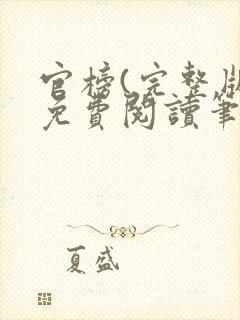 官榜(完整版
免費閱讀筆
夏盛